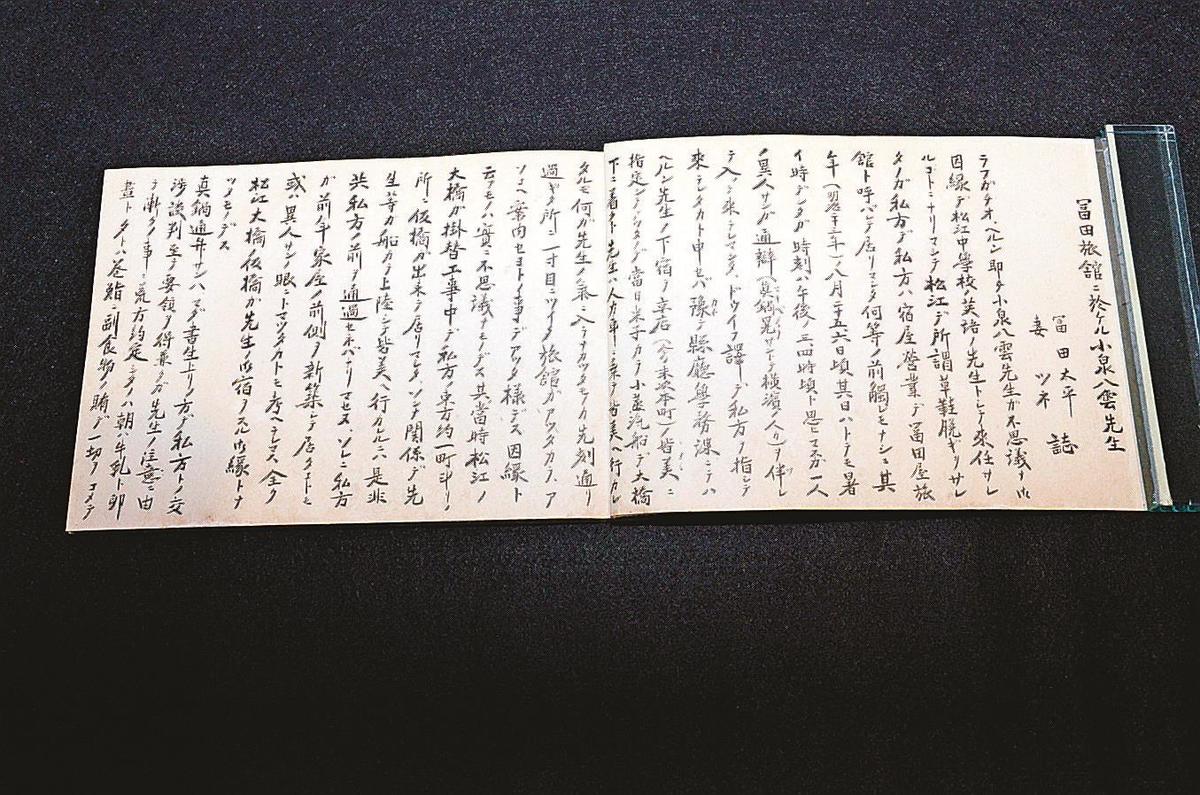 冨田旅館ニ於ケル小泉八雲先生
冨田太平
妻 ツネ 誌
ラフカヂオ、ヘルン卽チ小泉八雲先生ガ不思議ノ御
因縁デ松江中學校ノ英語ノ先生トシテ來任サレ
ルコトニナリマシテ松江デ所謂草鞋脱ギヲサレ
タノガ私方デ私方ハ宿屋營業デ冨田屋旅
館ト呼バレテ居リマシタ何等ノ前觸レモナシニ其
年(明治二十三年)ノ八月二十五六日頃其日ハトテモ暑
イ時デシタガ時刻ハ午後ノ三、四時頃ト思ヒマス一人
ノ異人サンガ通辯(眞鍋晃サントテ横濱ノ人)ヲ伴レ
テ入ッテ來ラレマシタ、ドウイフ譯デ私方ヲ指シテ
來ラレタカト申セバ豫テ縣廳學務課ニテハ
ヘルン先生ノ下宿ヲ京店(今ノ末次本町)ノ皆美ニ
指定シテアッタノデ當日米子カラ小蒸汽船デ大橋
下ニ着クト先生ハ人力車ニ乗ッテ皆美ヘ行カレ
タルモ何ガ先生ノ氣ニ入ラナカッタモノカ先刻通リ
過ギタ所ニ一寸目ニツイタ旅館ガアッタカラ、ア
ソコヘ案内セヨトノ事デアッタ様デス因縁ト
云フモノハ實ニ不思議ナモノデス其當時松江ノ
大橋ガ掛替工事中デ私方ノ東方約一町斗リノ
所ニ仮橋ガ出來テ居リマシタ、ソンナ関係デ先
生等ガ船カラ上陸シテ皆美ヘ行カルルニハ是非
共私方ノ前ヲ通過セネバナリマセヌ、ソレニ私方
ガ前年家屋ノ前側ヲ新築シテ居タコトモ
或ハ異人サンノ眼ニトマッタカトモ考ヘラレマス 全ク
松江大橋ノ仮橋ガ先生ノ御宿ヲスル御縁トナ
ツタモノデス
真鍋通弁サンハマダ書生上リノ方デ私方トノ交
渉談判至ッテ要領ヲ得兼タガ先生ノ注意ニ由
ッテ漸クノ事ニ荒方約定シタノハ朝ハ牛乳ト卵
晝ト夕トハ巻鮨ニ副食物ノ賄デ一切ヲコメテ